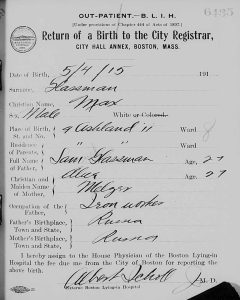 6435
OUT-PATIENT.—B. L. I. H.
[Under provisions of Chapter 444 of Acts of 1897.]
Return of a Birth to the City Registrar,
CITY HALL ANNEX, BOSTON, MASS.
Date of Birth, 5/4/15 191
Surname, Glassman
Christian Name, Max
Sex, Male White or Colored.
Place of Birth, St. and No. 9 Ashland 11 Ward 8
Residence of Parents, " Ward
Full Name of Father, Sam Glassman Age, 27
Christian and Maiden Name of Mother, Melzer Age, 27
Occupation of the Father, Iron worker
Father's Birthplace, Town and State, Russia
Mother's Birthplace, Town and State, Russia
I hereby assign to the House Physician of the Boston Lying-in
Hospital the fee due me from the City of Boston for reporting the
above birth.
Albert Scholl M. D.
Boston Lying-in Hospital